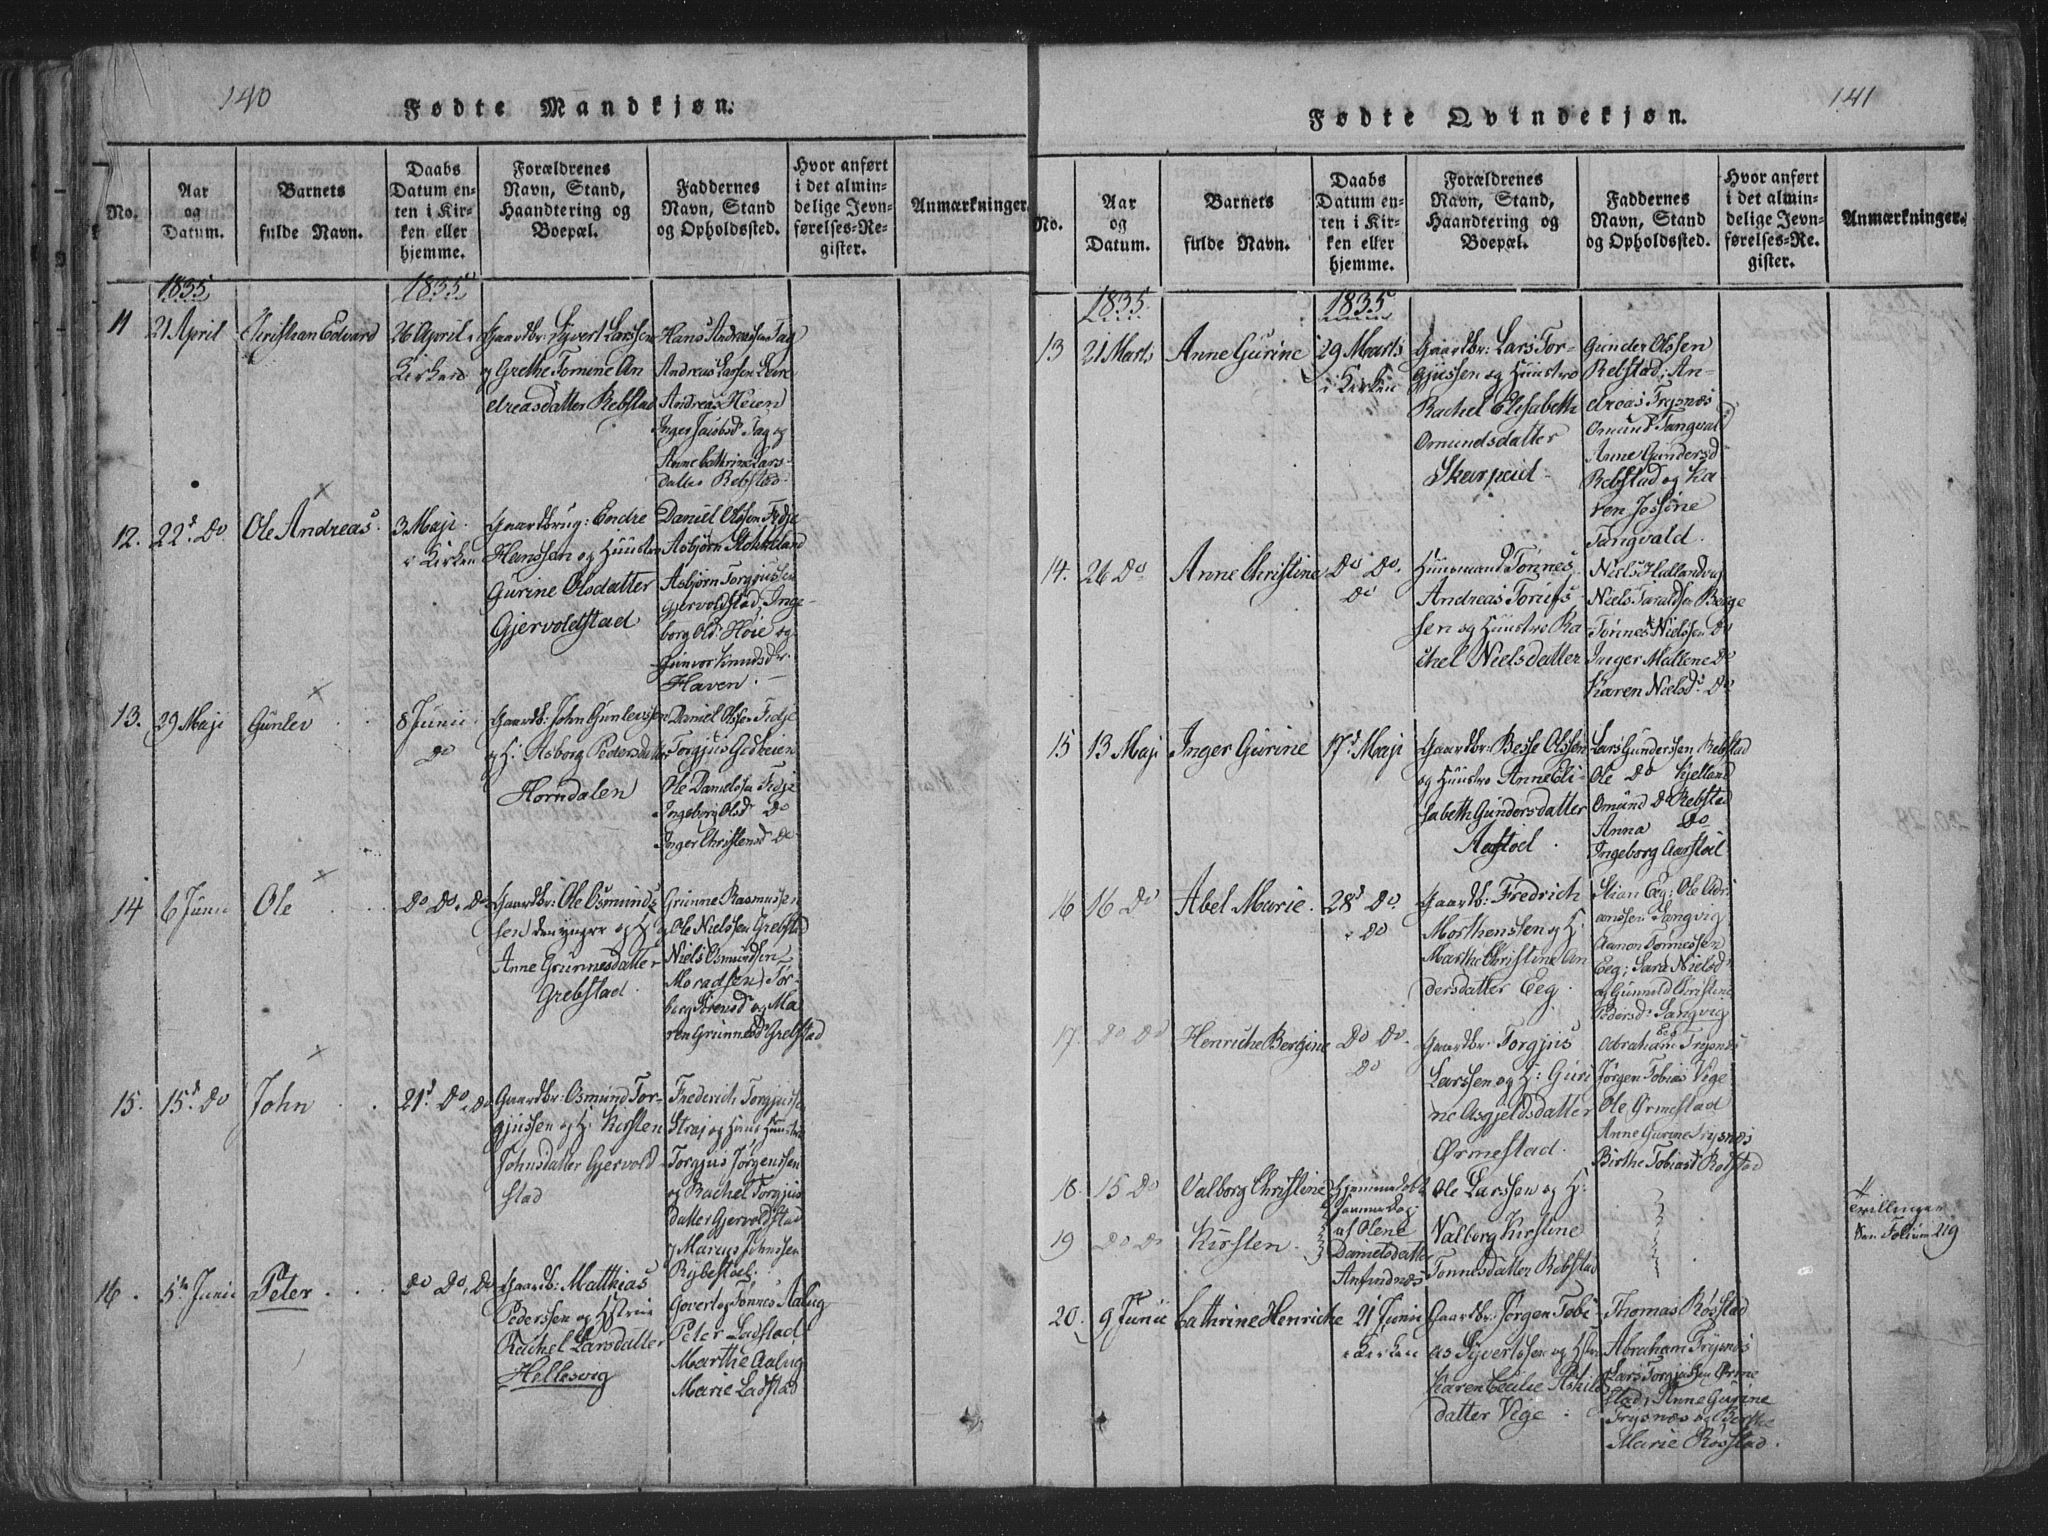 140
Fødte Mandkjøn.
No.
Aar
og
Datum.
Barnets
fulde Navn.
Daabs
Datum en-
ten i Kir-
ken eller
hjemme.
Forældrenes
Navn, Stand,
Haandtering og
Boepæl.
Faddernes
Navn, Stand
og Opholdssted.
Hvor anført
i det almin-
delige Jevn-
førelses-Re-
gister.
Anmærkninger.
1835
1835
11
21 April
Christian Edvard
26 April i
Kirken
Gaardbr: Syvert Larssen
og Grethe Tomine An
dreasdatter Rebstad
Hans Andreassen Fag
Andreas Larsen
Andreas Heien
Inger Jacobsd Fag og
Anne Cathrine Lars-
datter Rebstad
12.
22d. Do
Ole Andreas
3 Maji
i Kirken
Gaardbrug: Endre
Hanssen og Huustro
Gurine Olsdatter
Gjervoldstad
Daniel Olssen Fidje
Asbjørn Stokkeland
Asbjørn Torgjussen
Gjervoldstad, Inge-
borg Olsd. Høie og
Gunvor Knudsdr.
Haven.
13.
29 Maji
Gunlev
8 Junii
Do
Gaardb: John Gunlevssen
og H: Asborg Pedersdatter
Horndalen
Daniel Olssen Fidje
Torgjus
Ole Danielssen Fidje
Ingeborg Olsd Do
Inger Christensd Do
14
6 Junii
Ole
Do Do. Do
Gaardbr: Ole Osmunds
sen den yngre og H:
Anne Grunnesdatter
Grebstad.
Grunne Rasmussen
og Ole Nielssen Grebstad
Niels Osmundsen
Moradsen, Tor-
berg Sørensd og Ma
ren Grunnesd Grebstad
15.
15d. Do
John
21d. Do. Do
Gaardbr: Osmund Tor-
gjussen og H: Kirsten
Johnsdatter Gjervold
stad
Frederich Torgjussen
Straj og Hans Huustro
Torgjus Jørgenssen
og Rachel Torgjus
datter Gjervoldstad
Marcus Johnssen
Rybestoel.
16.
5te Junii
Peter
Do Do, Do
Gaardb: Matthias
Pederssen og Hstrue
Rachel Larsdatter
Hellesvig
Govert og Tønnes Aalug
Peter Ladstad
Marthe Aalug
Marie Ladstad
141
Fødte Qvindekjøn.
No.
Aar
og
Datum.
Barnets
fulde Navn.
Daabs
Datum en-
ten i Kir-
ken eller
hjemme.
Forældrenes
Navn, Stand,
Haandtering og
Boepæl.
Faddernes
Navn, Stand
og Opholdssted.
Hvor anført
i det almin-
delige Jevn-
førelses-Re-
gister.
Anmærkninger.
1835
1835
13
21 Marts
Anne Gurine
29 Marts
i Kirken
Gaardbr: Lars Tor-
gjussen og Huustro
Rachel Elisabeth
Omundsdatter
Skarpeid.
Gunder Olssen
Rebstad, An-
dreas Trysnæs
Omund Tangvald
Anne Gundersd
Rebstad og Ka
ren Josine
Tangvald.
14.
26 Do
Anne Christine
Do Do.
Do
Huusmand Tønnes
Andreas Torius
sen og Huustro Ra
chel Nielsdatter
Niels Hallandvig
Niels Taraldsen Berge
Tønnes Nielssen Do
Inger Mallene Do
Karen Nielsd. Do
15
13 Maji
Inger Gurine
17d Maji
Gaardbr: Besse Olssen
og Huustro Anne Eli-
sabeth Gundersdatter
Aastoel
Lars Gunderssen Rebstad
Ole Do Kjelland
Omund Do Rebstad
Anna Do
Ingeborg Aarstoel
16
16 Do
Abel Marie
28d Do.
i Do
Gaardb: Fredrich
Morthenssen og H:
Marthe Christine An
dersdatter Eeg.
Stian Eeg; Ole Adri
anssen Tangvig
Aanon Tønnessen
Eeg; Sara Nielsd
og Gunnild Christine
Pedersd. Langvig
17.
Do Do
Henriche Bergine
Do Do.
Do
Gaardbr: Torgjus
Larssen og H: Guri
ne Asgjeldsdatter
Ørmestad.
Abraham Trysnæs
Jørgen Tobias Vege
Ole Ørmestad
Anne Gurine Trysnæs
Birthe Tobiasd Røsstad
18.
15 Do
Valborg Christine
19
Do Do
Kirsten.
Hjemmedøbt
af Olene
Danielsdatter
Anfindnæs
Ole Larssen og H:
Valborg Kirstine
Tønnesdatter Rebstad
Tvillinger
Folium 219
20.
9 Junii
Cathrine Henriche
21 Junii
i Kirken
Gaardbr: Jørgen Tobi-
as Syvertssen og Hstro
Karen Cecilie Askild
datter Vege
Thomas Røsstad
Abraham Trysnæs
Lars Torgjussen Ørme
stad, Anne Gurine
Trysnæs og Berthe
Marie Røsstad.